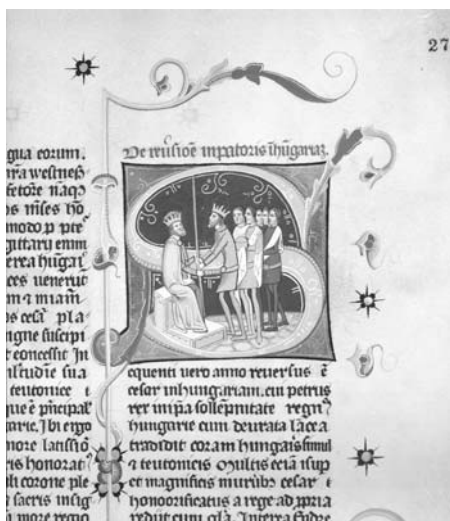 27
gua eorum.
fetore naqꝫ
os mises ho
modo p pte
gittarii enim
erea hūgai
ces uenerūt
m ⁊ miam
os cesar pla
igne suscepi
e concessit In
ilitudīe sua
teutonice ⁊
que ē pncipal
garie. Ibi ergo
more latissiō
is honorat
li corone ple
sacris insig
more regio
De reūsiōe inpatoris ī hūgariaꝫ.
S
equenti vero anno reuersus ē
cesar in hungariam. cui petrus
rex in ipa sollēpnitate regnū
hungarie cum deurata lācea
tradidit coram hungaris simul
⁊ teutonicis Multis eciā isup
et magnificis munibꝫ cesar ⁊
honorificatus a rege ad ppria
rediit cum gla. Interea Endre